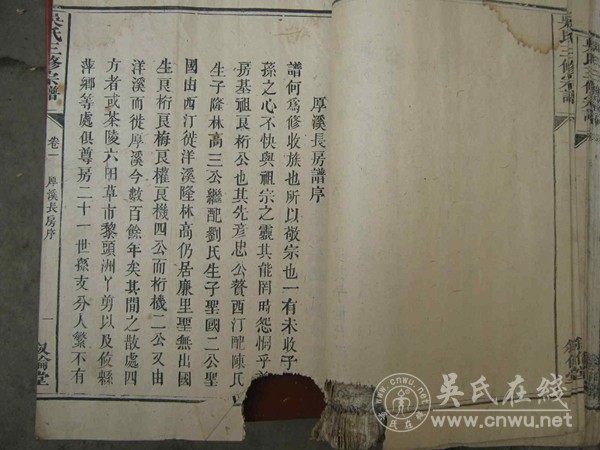 吳氏三修宗譜
吳氏三修宗譜
厚溪長房譜序
譜何爲修收族也所以敬宗也一有未收子
孫之心不快與祖宗之靈其能罔時怨恫乎
房基祖良桁公也其先彥忠公贅西汀配陳氏
生子隆林高三公繼配劉氏生子聖國二公聖
國由西汀徙洋溪隆林高仍居廉里聖無出國
生良桁良梅良權良機四公而桁機二公又由
洋溪而徙厚溪今數百餘年矣其間之散處四
方者或茶陵六 草市黎頭洲丫剪以及攸縣
萍鄉等處俱尊房二十一世孫支分人繁不有
吳氏三修宗譜
卷一
厚溪長房序
一
敘倫堂
吴氏在线
www.cnwu.net